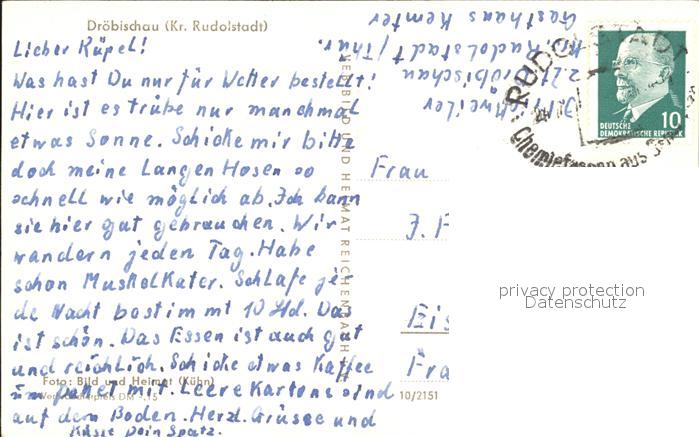 Dröbischau (Kr. Rudolstadt)
Licher Rüpel!
Was hast Du nur für Wetter bestellt!
Hier ist es trübe nur manchmal
etwas Sonne. Schicke mir bitte
doch meine Langen Hosen so
schnell wie möglich ab. Ich kann
sie hier gut gebrauchen. Wir
wandern jeden Tag. Habe
schon Muskelkater. Schlafe je-
de Nacht bestimmt 10 Std. Das
ist schön. Das Essen ist auch gut
und reichlich. Schicke etwas Kaffee
im paket mit. Leere Kartons sind
auf dem Boden. Herzl. Grüsse und
Küsse Dein Spatz.
Foto: Bild und Heimat (Kühn)
10/2151
VERLAG BILD UND HEIMAT REICHENBACH
z.Zt. Dröbischau
Kr. Rudolstadt/Thür.
Gasthaus Kemter
RUDOLSTADT
Chemiefasern aus
DEUTSCHE
DEMOKRATISCHE REPUBLIK
10
Frau
Eis
Fra
privacy protection
Datenschutz